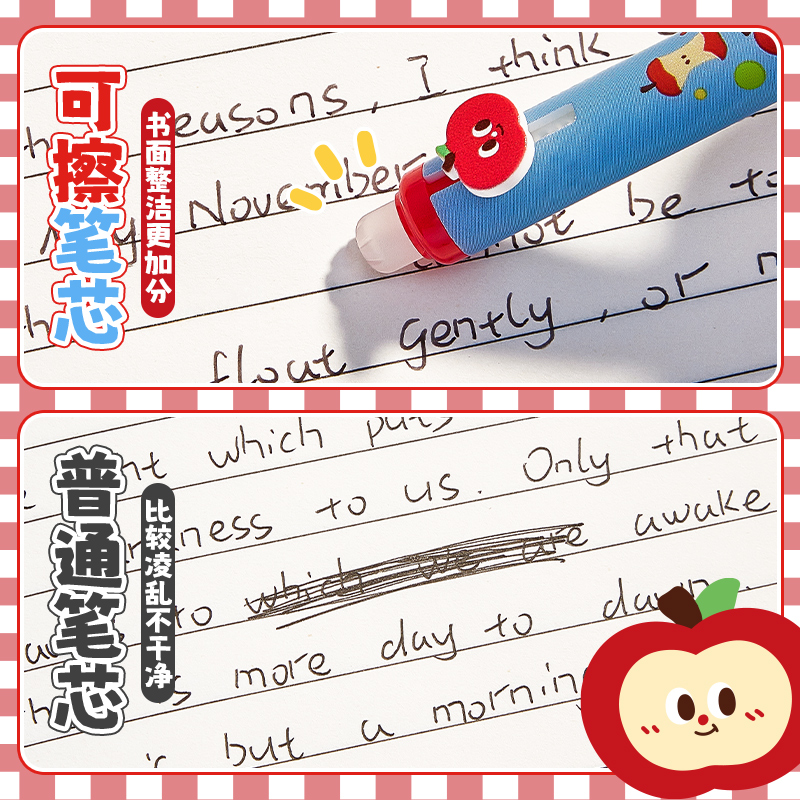 可擦笔芯
书面整洁更加分
easons, I think
November
not be to
flout gently, or
普通笔芯
比较凌乱不干净
nt which puts
ness to us. Only that
to which we are awake
more day to dawn.
but a morning